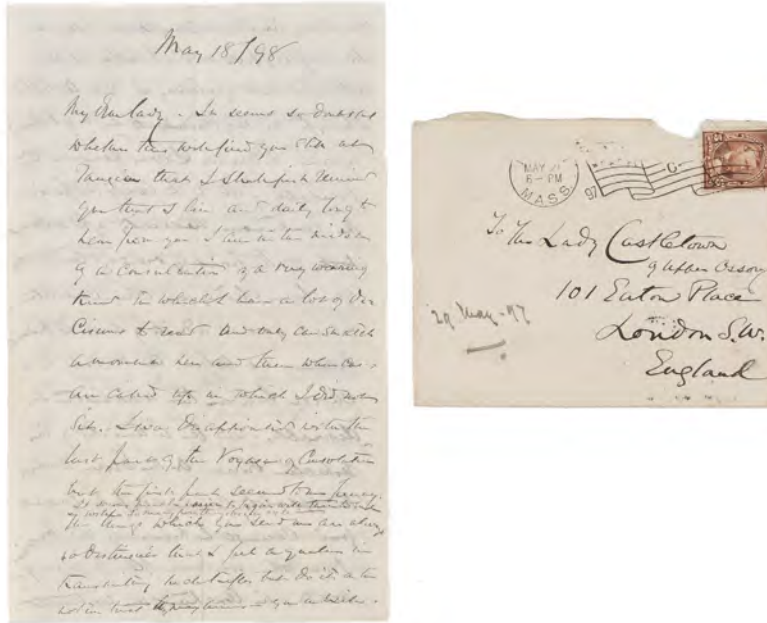 May 18/98
My dear lady - It seems so doubtful
whether this will find you still at
Tangier that I shall first remind
you that I live and daily long to
hear from you I am in the midst
of a consultation of a very wearing
kind in which I have a lot of
to read and only can snatch
a moment here and there when cases
are called up in which I did not
sit. I was disappointed with the
last part of the Voyage of Consolation
but the first part seemed to me funny.
the things which you send me are always
so that I feel in
but do it in the
notion that
MAY 21
6-PM
MASS.
97
To The Lady Castletown
of Upper Ossory
101 Eaton Place
London S.W.
England
29 May-97